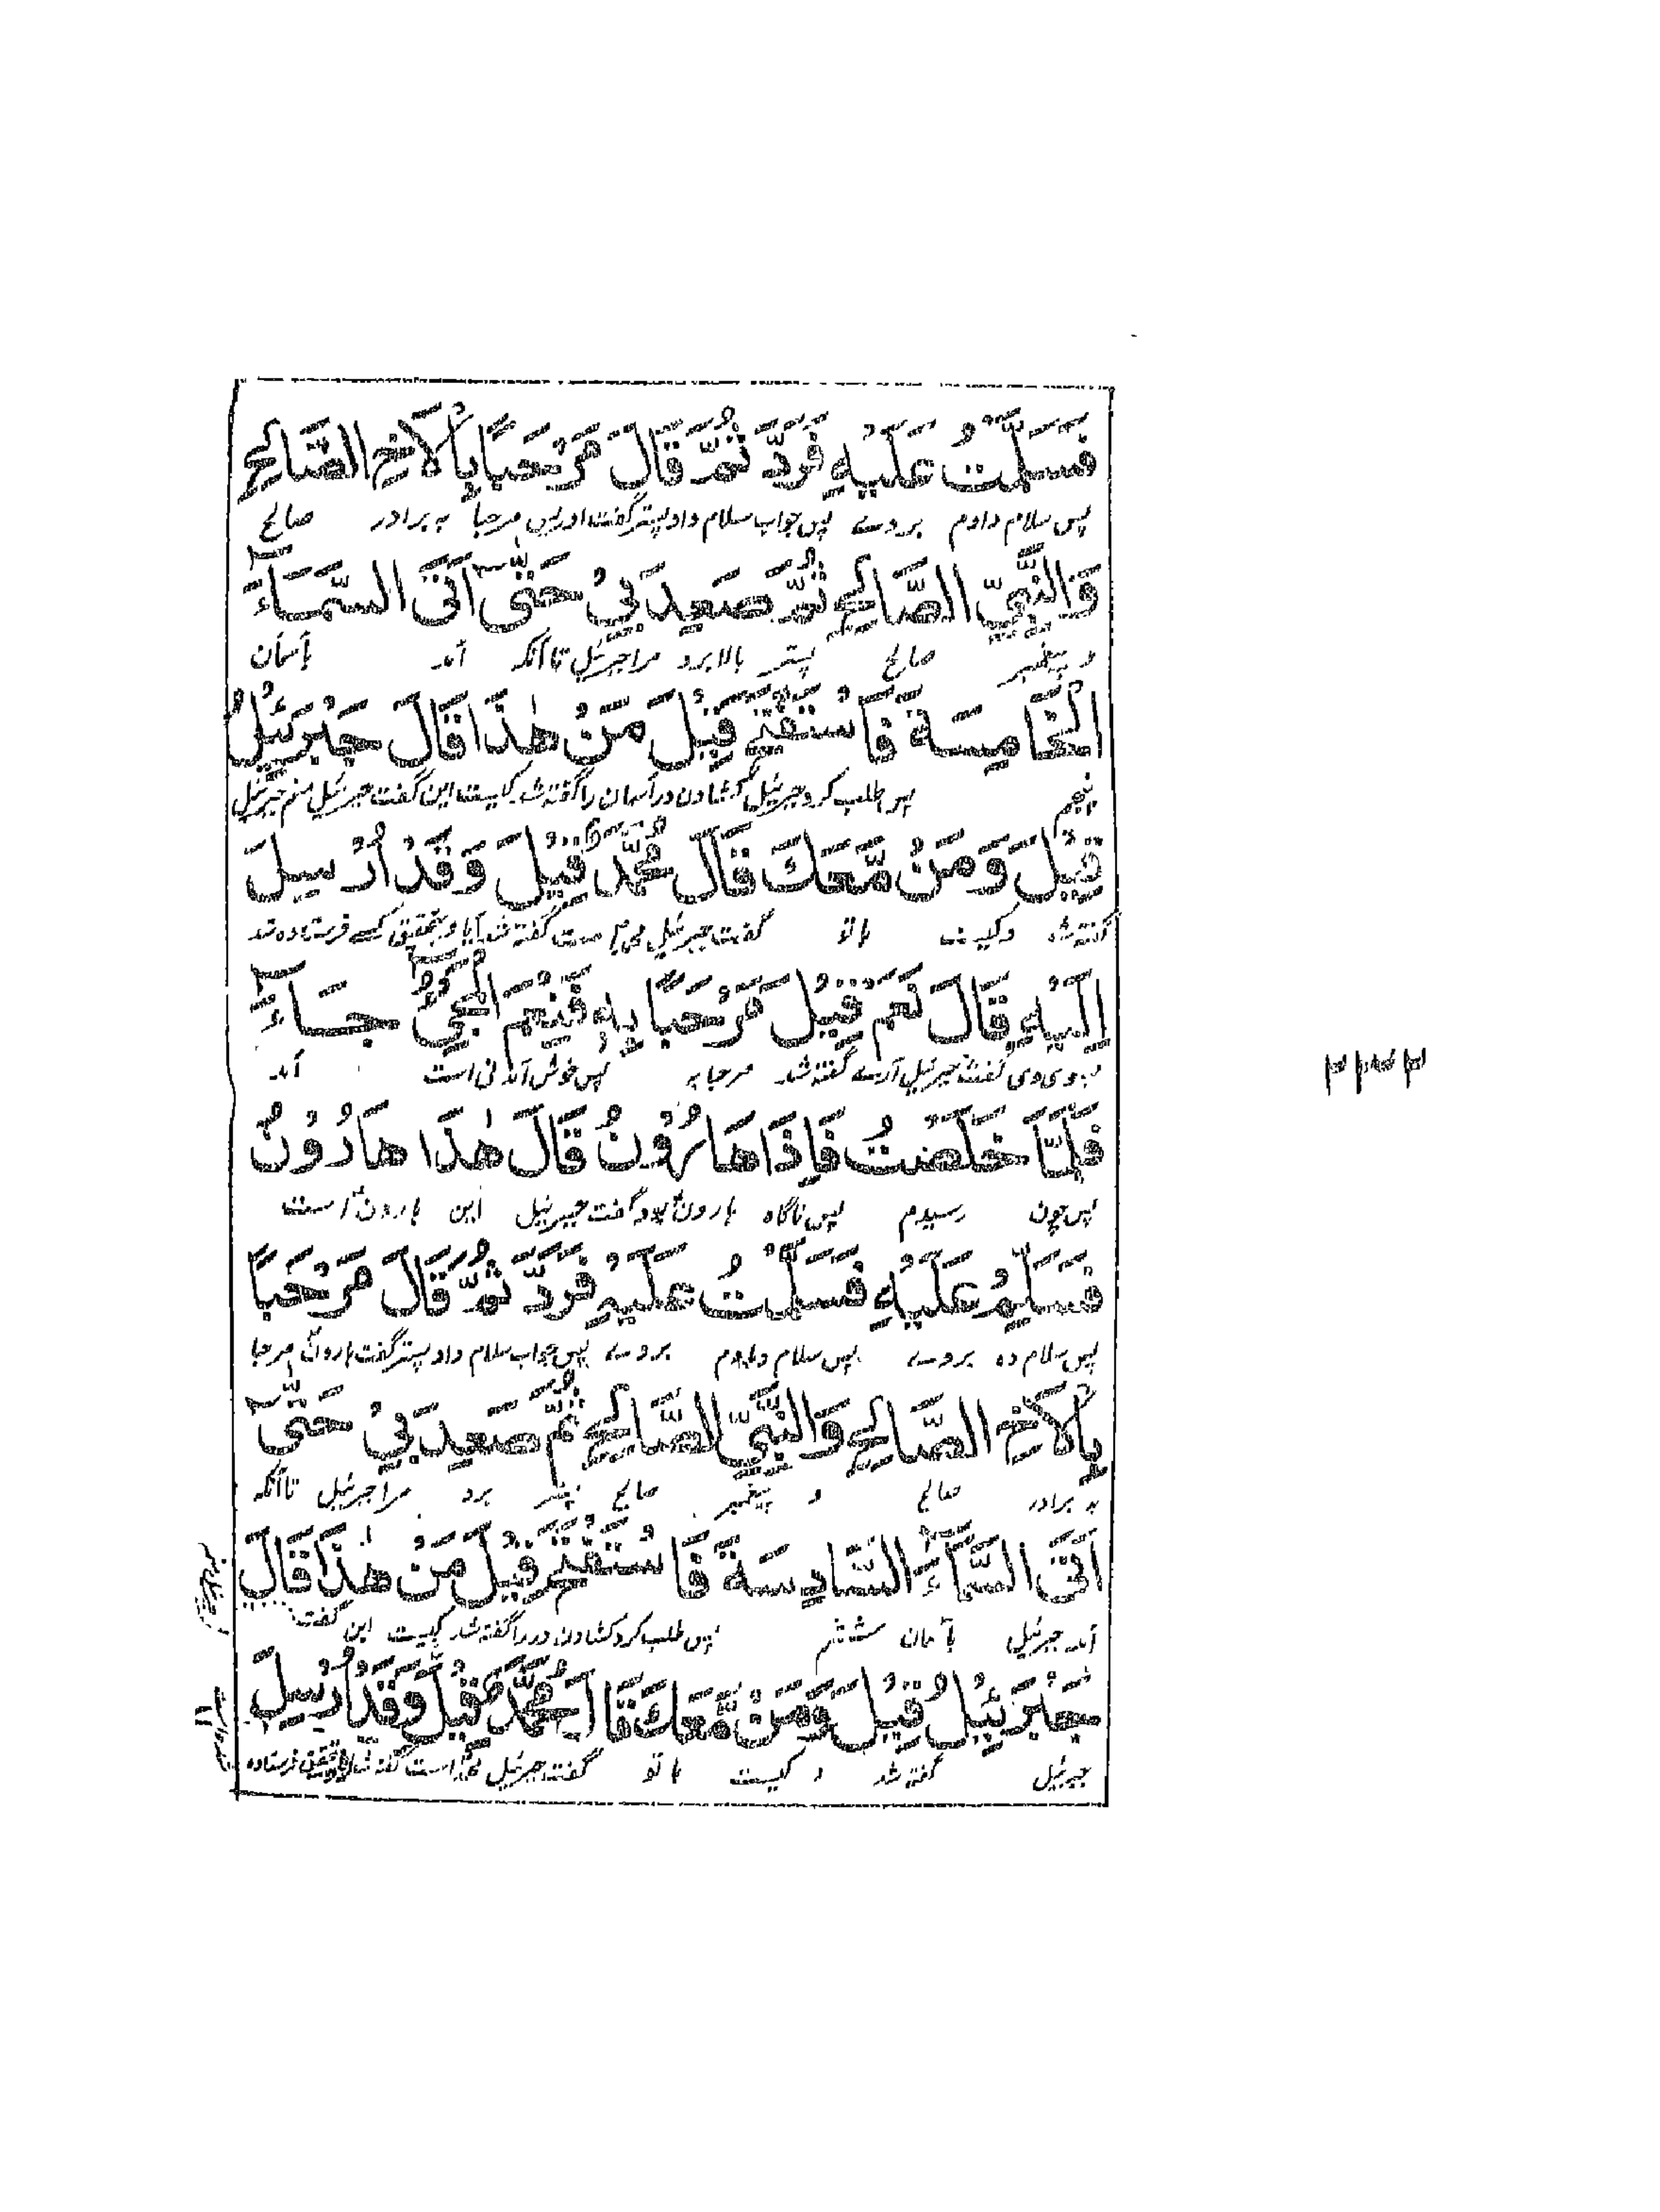 فَسَلَّمْتُ عَلَيْهِ فَرَدَّ ثُمَّ قَالَ مَرْحَبًا بِالْاَخِ الصَّالِحِ
پس سلام دادم بروے پس جواب سلام داد پستر گفت ادریس مرحبا به برادر صالح
وَالنَّبِيِّ الصَّالِحِ ثُمَّ صَعِدَ بِيْ حَتّٰى اَتَى السَّمَآءَ
و پیغمبر صالح پستر بالا برد مرا جبرئیل تا آنکه آمد بآسمان
الْخَامِسَةَ فَاسْتَفْتَحَ قِيْلَ مَنْ هٰذَا قَالَ جِبْرَئِيْلُ
پنجم پس طلب کرد جبرئیل کشادن در آسمان را گفته شد کیست این گفت جبرئیل منم جبرئیل
قِيْلَ وَمَنْ مَّعَكَ قَالَ مُحَمَّدٌ قِيْلَ وَقَدْ اُرْسِلَ
گفته شد و کیست با تو گفت جبرئیل گفته شد آیا و بتحقیق کسے فرستاده شد
اِلَيْهِ قَالَ نَعَمْ قِيْلَ مَرْحَبًا بِهٖ فَنِعْمَ الْمَجِيْءُ جَآءَ
بسوی وی گفت جبرئیل آرے گفته شد مرحبا به پس خوش آمدنی است آمد
فَلَمَّا خَلَصْتُ فَاِذَا هَارُوْنُ قَالَ هٰذَا هَارُوْنُ
پس چون رسیدم پس ناگاه هارون بود گفت جبرئیل این هارون است
فَسَلِّمْ عَلَيْهِ فَسَلَّمْتُ عَلَيْهِ فَرَدَّ ثُمَّ قَالَ مَرْحَبًا
پس سلام ده بروے پس سلام دادم بروے پس جواب سلام داد پستر گفت هارون مرحبا
بِالْاَخِ الصَّالِحِ وَالنَّبِيِّ الصَّالِحِ ثُمَّ صَعِدَ بِيْ حَتّٰى
به برادر صالح و پیغمبر صالح پستر برد مرا جبرئیل تا آنکه
اَتَى السَّمَآءَ السَّادِسَةَ فَاسْتَفْتَحَ قِيْلَ مَنْ هٰذَا قَالَ
آمد جبرئیل بآسمان ششم پس طلب کرد کشادن در را گفته شد کیست این گفت
جِبْرَئِيْلُ قِيْلَ وَمَنْ مَّعَكَ قَالَ مُحَمَّدٌ قِيْلَ وَقَدْ اُرْسِلَ
جبرئیل گفته شد و کیست با تو گفت جبرئیل محمد است گفته شد آیا و بتحقیق فرستاده